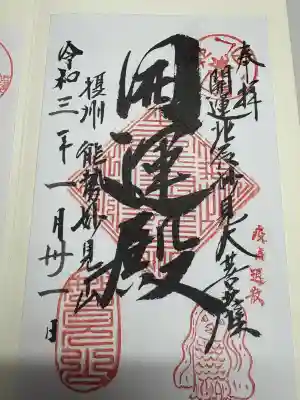 奉拝
開運北辰妙見大菩薩
開運殿
摂州 能勢妙見山
令和三年一月卅一日